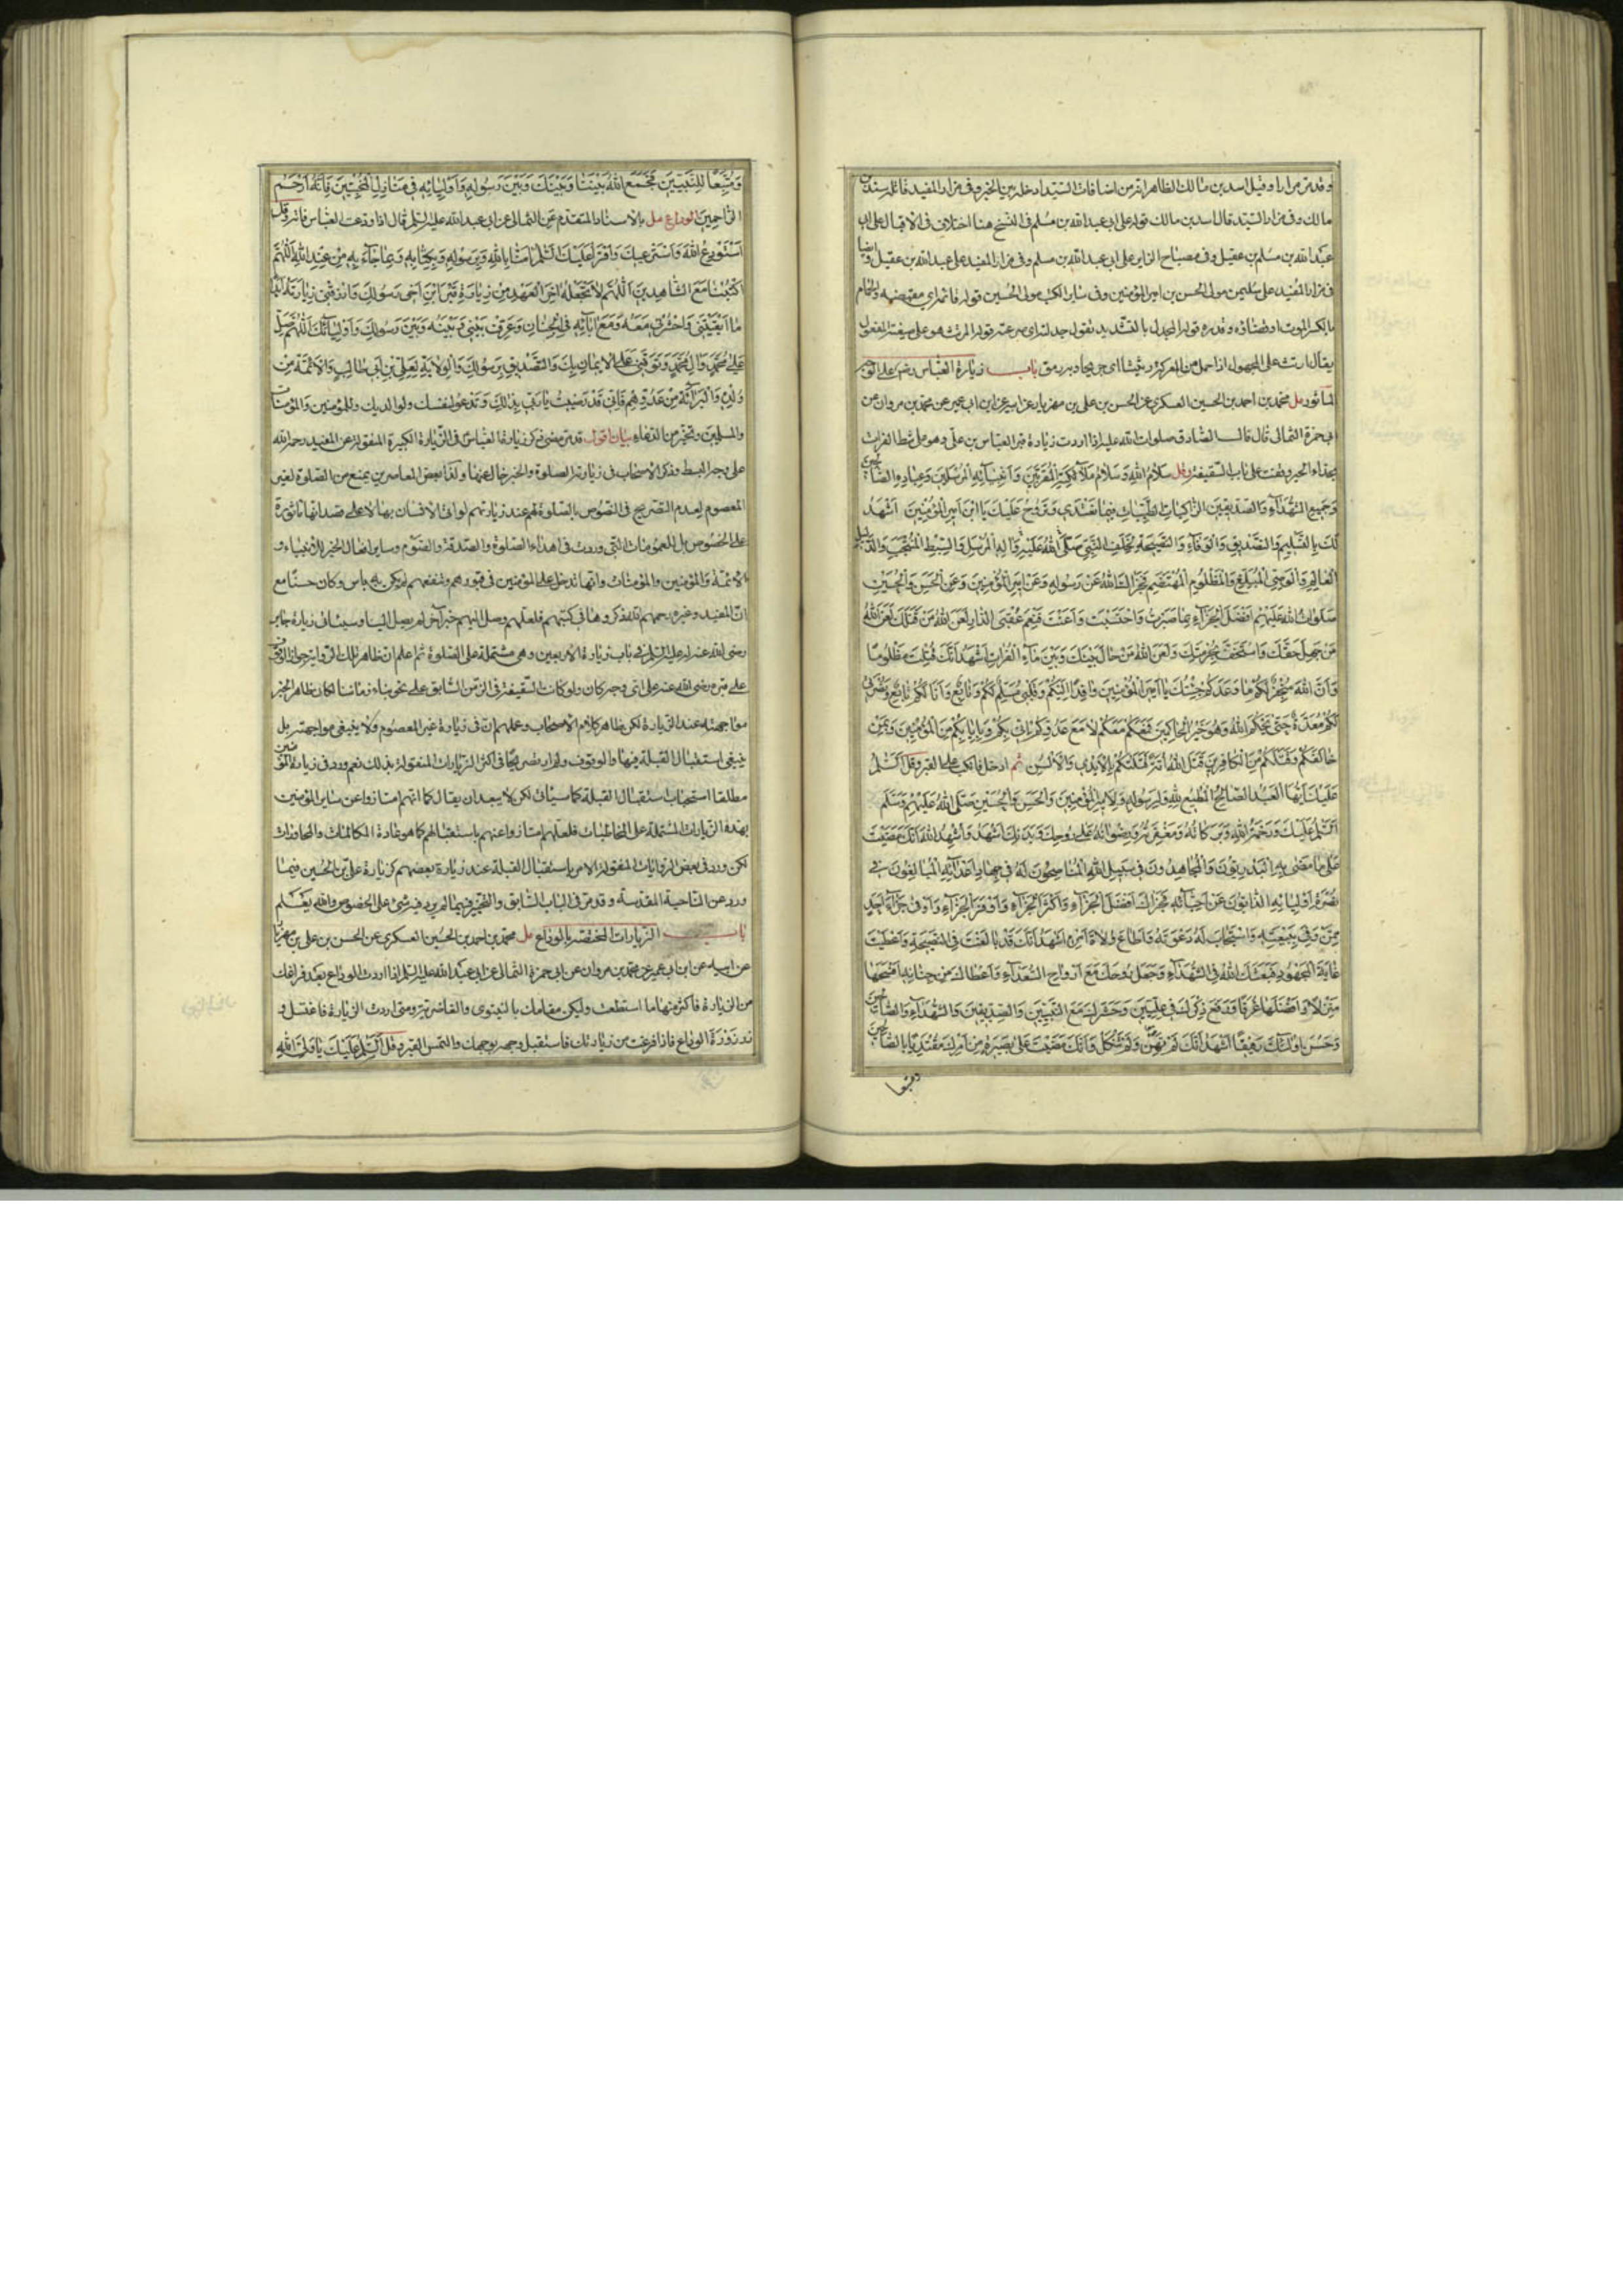 وقد مر مرارا وقيل اسد بن مالك الظاهر انه من اضافات السيد ادخله بين الخبر وفى مزار المفيد قاتله
مالك وفى مزار السيد قال اسد بن مالك قوله على ابى عبد الله بن مسلم فى النسخ هنا اختلاف فى الاقبال على ابى
عبد الله بن مسلم بن عقيل وفى مصباح الزاير على ابى عبد الله بن مسلم وفى مزار المفيد على عبد الله بن عقيل وايضا
فى مزار المفيد على سليمن مولى الحسن بن امير المؤمنين وفى ساير الكتب مولى الحسين قوله فانما اى والحمام
بالكسر الموت او قضاؤه وقدره قوله المجدل بالتشديد تقول جدلته اى صرعته قوله المرتث هو على صيغة المفعول
يقال ارتث على المجهول اذا حمل من المعركة رثيثا اى جريحا وبه رمق باب زيارة العباس رضى على الوجه
المأثور مل محمد بن احمد بن الحسين العسكرى عن الحسن بن على بن مهزيار عن ابيه عن ابن ابى عمير عن محمد بن مروان عن
ابى حمزة الثمالى قال قال الصادق صلوات الله عليه اذا اردت زيارة قبر العباس بن على وهو على شط الفرات
بحذاء الحير وقفت على باب السقيفة وقل سلام الله وسلام ملائكته المقربين وانبيائه المرسلين وعباده الصالحين
وجميع الشهداء والصديقين الزاكيات الطيبات فيما تغتدى وتروح عليك يا ابن امير المؤمنين اشهد
لك بالتسليم والتصديق والوفاء والنصيحة لخلف النبى صلى الله عليه واله المرسل والسبط المنتجب والدليل
العالم والوصى المبلغ والمظلوم المهتضم فجزاك الله عن رسوله وعن امير المؤمنين وعن الحسن والحسين
صلوات الله عليهم افضل الجزاء بما صبرت واحتسبت واعنت فنعم عقبى الدار لعن الله من قتلك لعن الله
من جهل حقك واستخف بحرمتك ولعن الله من حال بينك وبين ماء الفرات اشهد انك قتلت مظلوما
وان الله منجز لكم ما وعدكم جئتك يا ابن امير المؤمنين وافدا اليكم وقلبى مسلم لكم وتابع وانا لكم تابع ونصرتى
لكم معدة حتى يحكم الله وهو خير الحاكمين فمعكم معكم لا مع عدوكم انى بكم وبايابكم من المؤمنين وبمن
خالفكم وقتلكم من الكافرين قتل الله امة قتلتكم بالايدى والالسن ثم ادخل فانكب على القبر وقل السلم
عليك ايها العبد الصالح المطيع لله ولرسوله ولامير المؤمنين والحسن والحسين صلى الله عليهم وسلم
السلم عليك ورحمة الله وبركاته ومغفرته ورضوانه على روحك وبدنك اشهد واشهد الله انك مضيت
على ما مضى به البدريون والمجاهدون فى سبيل الله المناصحون له فى جهاد اعدائه المبالغون فى
نصرة اوليائه الذابون عن احبائه فجزاك افضل الجزاء واكثر الجزاء واوفر الجزاء واوفى جزاء احد
ممن وفى ببيعته واستجاب له دعوته واطاع ولاة امره اشهد انك قد بالغت فى النصيحة واعطيت
غاية المجهود فبعثك الله فى الشهداء وجعل روحك مع ارواح السعداء واعطاك من جنانه افسحها
منزلا وافضلها غرفا ورفع ذكرك فى عليين وحشرك مع النبيين والصديقين والشهداء والصالحين
وحسن اولئك رفيقا اشهد انك لم تهن ولم تنكل وانك مضيت على بصيرة من امرك مقتديا بالصالحين
ومتبعا
ومتبعا للنبيين فجمع الله بيننا وبينك وبين رسوله واوليائه فى منازل المخبتين فانه ارحم
الراحمين الوداع مل بالاسناد المتقدم عن الثمالى عن ابى عبد الله عليه السلم قال اذا ودعت العباس فاته وقل
استودع الله واسترعيك واقرا عليك السلم امنا بالله وبرسوله وبكتابه وبما جاء به من عند الله اللهم
اكتبنا مع الشاهدين اللهم لا تجعله اخر العهد من زيارة قبر ابن اخى رسولك وارزقنى زيارته ابدا
ما ابقيتنى واحشرنى معه ومع ابائه فى الجنان وعرف بينى وبينه وبين رسولك واوليائك اللهم صل
على محمد وال محمد وتوفنى على الايمان بك والتصديق برسولك والولاية لعلى بن ابى طالب والائمة من
ولده والبراءة من عدوهم فانى قد رضيت يا رب بذلك وتدعو لنفسك ولوالديك وللمؤمنين والمؤمنات
والمسلمين وتخير من الدعاء بيان اقول قد مضى ذكر زيارة العباس فى الزيارة الكبيرة المنقولة عن المفيد رحمه الله
على وجه البسط وذكر الاصحاب فى زيارته الصلوة والخبر خال عنها ولذا بعض المعاصرين يمنع من الصلوة لغير
المعصوم لعدم التصريح فى النصوص بالصلوة لهم عند زيارتهم لو اتى الانسان بها لا على قصد انها مأثورة
على الخصوص بل للعمومات التى وردت فى اهداء الصلوة والصدقة والصوم وساير افعال الخير للانبياء و
الائمة والمؤمنين والمؤمنات وانها تدخل على المؤمنين فى قبورهم وتنفعهم لم يكن به باس وكان حسنا مع
ان المفيد وغيره رحمهم الله ذكروها فى كتبهم فلعلهم وصل اليهم خبر آخر لم يصل الينا وسيئاتى زيارة جابر
رضى الله عنه له عليه السلم فى باب زيارة الاربعين وهى مشتملة على الصلوة ثم اعلم ان ظاهر تلك الرواية جواز الوقوف
على قبره رضى الله عنه على اى وجه كان ولو كانت السقيفة فى الزمن السابق على نحو بناء زماننا لكان ظاهر الخبر
مواجهته عند الزيارة لكن ظاهر كلام الاصحاب وعملهم ان فى زيارة غير المعصوم لا ينبغى مواجهته بل
ينبغى استقبال القبلة فيها والوقوف ولم ار تصريحا فى اكثر الزيارات المنقولة بذلك نعم ورد فى زيارة المؤمنين
مطلقا استحباب استقبال القبلة كما سيأتى لكن لا يبعد ان يقال كما انهم امتازوا عن ساير المؤمنين
بهذه الزيارات المشتملة على المخاطبات فلعلهم امتازوا عنهم باستقبالهم كما هو عادة المكالمات والمحاورات
لكن ورد فى بعض الروايات المنقولة الامر باستقبال القبلة عند زيارة بعضهم كزيارة على بن الحسين فيما
ورد عن الناحية المقدسة وقد مر فى الباب السابق والتخيير فيما لم يرد فيه شئ على الخصوص والله يعلم
باب الزيارات المختصر بالوداع مل محمد بن احمد بن الحسين العسكرى عن الحسن بن على بن مهزيار
عن ابيه عن ابن ابى عمير عن محمد بن مروان عن ابى حمزة الثمالى عن ابى عبد الله عليه السلم اذا اردت الوداع بعد فراغك
من الزيارة فاكثر منها ما استطعت وليكن مقامك بالنينوى والغاضرية ومتى اردت الزيارة فاغتسل و
زر زورة الوداع فاذا فرغت من زيارتك فاستقبل وجهه بوجهك والتمس القبر وقل السلم عليك يا ولى الله